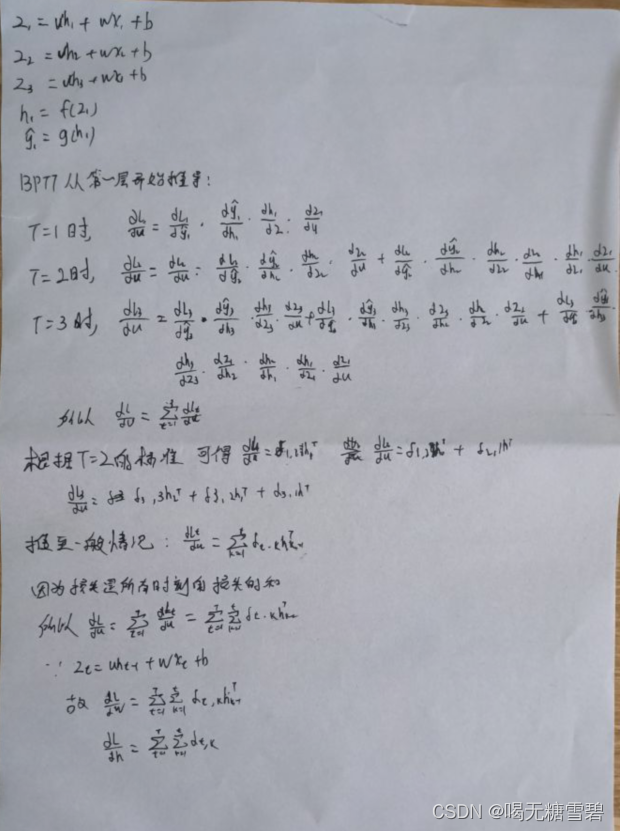 z₁ = uh₁ + wx₁ + b
z₂ = uh₂ + wx₂ + b
z₃ = uh₃ + wx₃ + b
h₁ = f(z₁)
ŷ₁ = g(h₁)
BPTT 从第一层开始推导:
T=1时, dL₁/du = dL₁/dŷ₁ · dŷ₁/dh₁ · dh₁/dz₁ · dz₁/du
T=2时, dL₂/du = dL₂/du = dL₂/dŷ₂ · dŷ₂/dh₂ · dh₂/dz₂ · dz₂/du + dL₂/dŷ₂ · dŷ₂/dh₂ · dh₂/dz₂ · dz₂/dh₁ · dh₁/dz₁ · dz₁/du
T=3时, dL₃/du = dL₃/dŷ₃ · dŷ₃/dh₃ · dh₃/dz₃ · dz₃/du + dL₃/dŷ₃ · dŷ₃/dh₃ · dh₃/dz₃ · dz₃/dh₂ · dh₂/dz₂ · dz₂/du + dL₃/dŷ₃ · dŷ₃/dh₃ ·
dh₃/dz₃ · dz₃/dh₂ · dh₂/dz₂ · dh₁/dz₁ · dz₁/du
所以 dL/du = Σ dLt/du
根据T=2的标准 可得 dL₂/du = δ₂,₁hᵀ
dL₃/du = δ₃,₃h₂ᵀ + δ₃,₂h₁ᵀ + δ₃,₁hᵀ
推至一般情况: dLt/du = Σ δt,k hᵀk-1
因为损失是所有时刻的损失的和
所以 dL/du = Σ dLt/du = Σ Σ δt,k hᵀk-1
∵ zt = uht-1 + wxt + b
故 dL/dw = Σ Σ δt,k hᵀk-1
dL/dh = Σ Σ δt,k
CSDN @喝无糖雪碧